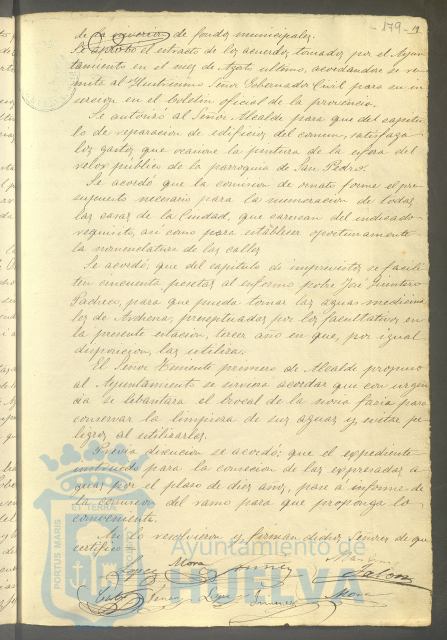 -179-
de la escasez de fondos municipales.
Se aprobó el extracto de los acuerdos tomados por el Ayun-
tamiento en el mes de Agosto ultimo, acordandose se re-
mita al Ilustrisimo Señor Gobernador Civil para su in-
sercion en el boletin oficial de la provincia.
Se autorizó al Señor Alcalde para que del capitu-
lo de reparacion de edificios del comun, satisfaga
los gastos que ocasione la pintura de la esfera del
relox público de la parroquia de San Pedro.
Se acordó que la comision de ornato forme el pre-
supuesto necesario para la numeracion de todas
las casas de la Ciudad, que carezcan del indicado
requisito, asi como para establecer oportunamente
la nomenclatura de las calles
Se acordó, que del capitulo de imprevistos se facili-
ten cincuenta pesetas al enfermo pobre José Quintero
Pacheco, para que pueda tomar las aguas medicina-
les de Archena, preceptuadas por los facultativos en
la presente estacion, tercer año en que, por igual
disposicion, las utiliza.
El Señor Teniente primero de Alcalde propuso
al Ayuntamiento se sirviera acordar que con urgen-
cia se lebantara el brocal de la noria para
conservar la limpieza de sus aguas y evitar pe-
ligros al utilizarlas.
Previa discusion se acordó: que el expediente
instruido para la concesion de las expresadas a-
guas por el plazo de diez años, pase á informe de
la comision del ramo para que proponga lo
conveniente.
Asi lo resolvieron y firman dichos Señores de que
certifico
Lopez Mora
Mora
PORTUS MARIS
ET TERRE
Ayuntamiento de
HUELVA